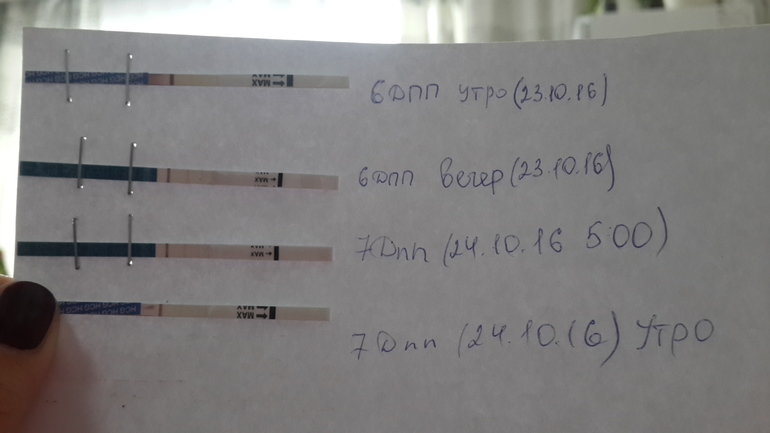 MAX
6ДПП утро (23.10.16)
MAX
6ДПП вечер (23.10.16)
MAX
7Дпп (24.10.16 5:00)
HCG HCG HCG HCG MAX
7Дпп (24.10.16) Утро